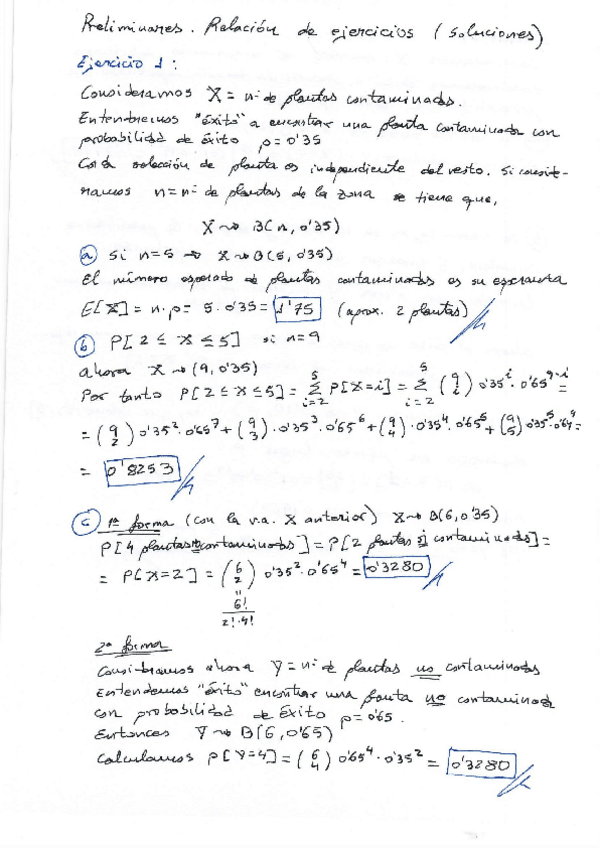 Preliminares. Relación de ejercicios (Soluciones)
Ejercicio 1:
Consideramos X = nº de plantas contaminadas.
Entendemos "éxito" a encontrar una planta contaminada con
probabilidad de éxito p=0'35
Cada selección de planta es independiente del resto. Si conside-
ramos n=nº de plantas de la zona se tiene que,
X ⇝ B(n, 0'35)
a) Si n=5 ⇒ X ⇝ B(5, 0'35)
El número esperado de plantas contaminadas es su esperanza
E[X] = n·p = 5·0'35 = 1'75 (aprox. 2 plantas)
b) P[2 ≤ X ≤ 5] si n=9
ahora X ⇝ (9, 0'35)
Por tanto P[2 ≤ X ≤ 5] = ∑_{i=2}^{5} P[X=i] = ∑_{i=2}^{5} (9 i) 0'35^i · 0'65^{9-i} =
= (9 2) 0'35² · 0'65⁷ + (9 3) · 0'35³ · 0'65⁶ + (9 4) · 0'35⁴ · 0'65⁵ + (9 5) 0'35⁵ · 0'64⁴ =
= 0'8253
c) 1ª forma (con la v.a. X anterior) X ⇝ B(6, 0'35)
P[4 plantas no contaminadas] = P[2 plantas sí contaminadas] =
= P[X=2] = (6 2) 0'35² · 0'65⁴ = 0'3280
"
6!
2!·4!
2ª forma
Consideramos ahora Y = nº de plantas no contaminadas
Entendemos "éxito" encontrar una planta no contaminada
con probabilidad de éxito p=0'65.
Entonces Y ⇝ B(6, 0'65)
Calculamos P[Y=4] = (6 4) 0'65⁴ · 0'35² = 0'3280